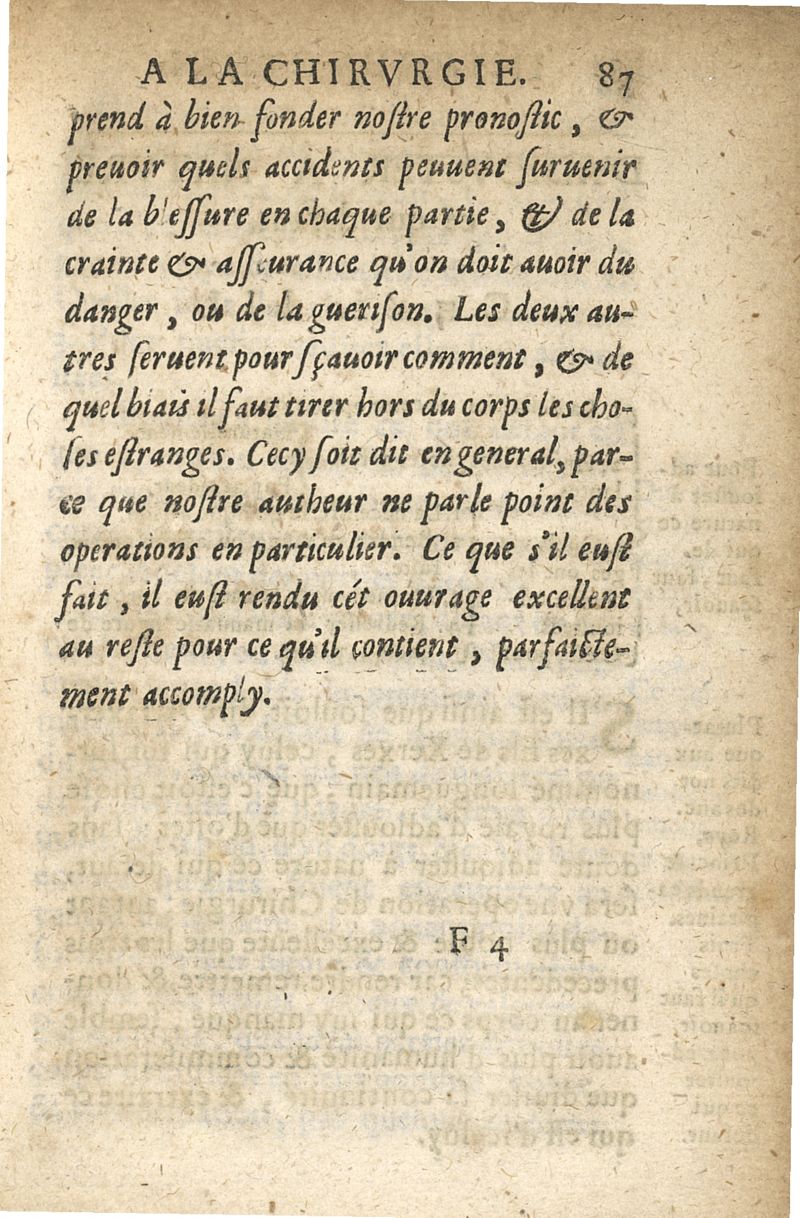 A LA CHIRVRGIE. 87
prend à bien fonder noſtre pronoſtic, &
preuoir quels accidents peuuent ſuruenir
de la bleſſure en chaque partie, & de la
crainte & aſſeurance qu'on doit auoir du
danger, ou de la gueriſon. Les deux au-
tres ſeruent pour ſçauoir comment, & de
quel biais il faut tirer hors du corps les cho-
ſes eſtranges. Cecy ſoit dit en general, par-
ce que noſtre autheur ne parle point des
operations en particulier. Ce que s'il euſt
fait, il euſt rendu cét ouurage excellent
au reſte pour ce qu'il contient, parfaicte-
ment accomply.
F 4